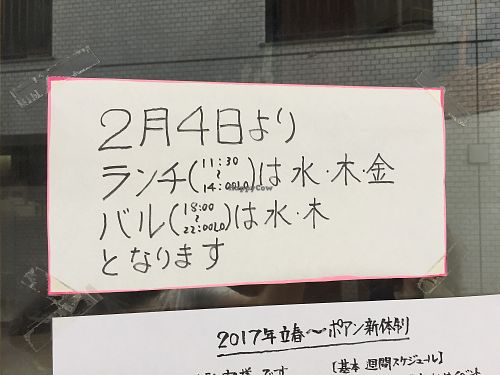 2月4日より
ランチ(11:30〜14:00LO)は水・木・金
バル(18:00〜22:00LO)は水・木
となります
HappyCow
2017年立春〜ポアン新体制
[基本 週間スケジュール]